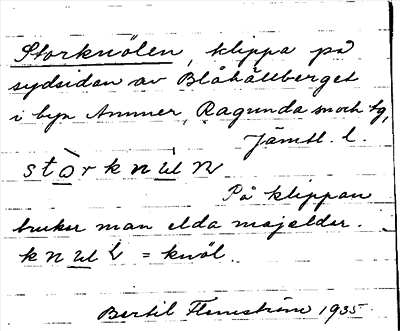 Storknölen, klippa på
sydsidan av Blåhällberget
i byn Ammer, Ragunda sn och tg,
Jämtl. l.
stòrknùln
På klippan
bruker man elda majelder.
knul = knöl.
Bertil Flemström 1935.